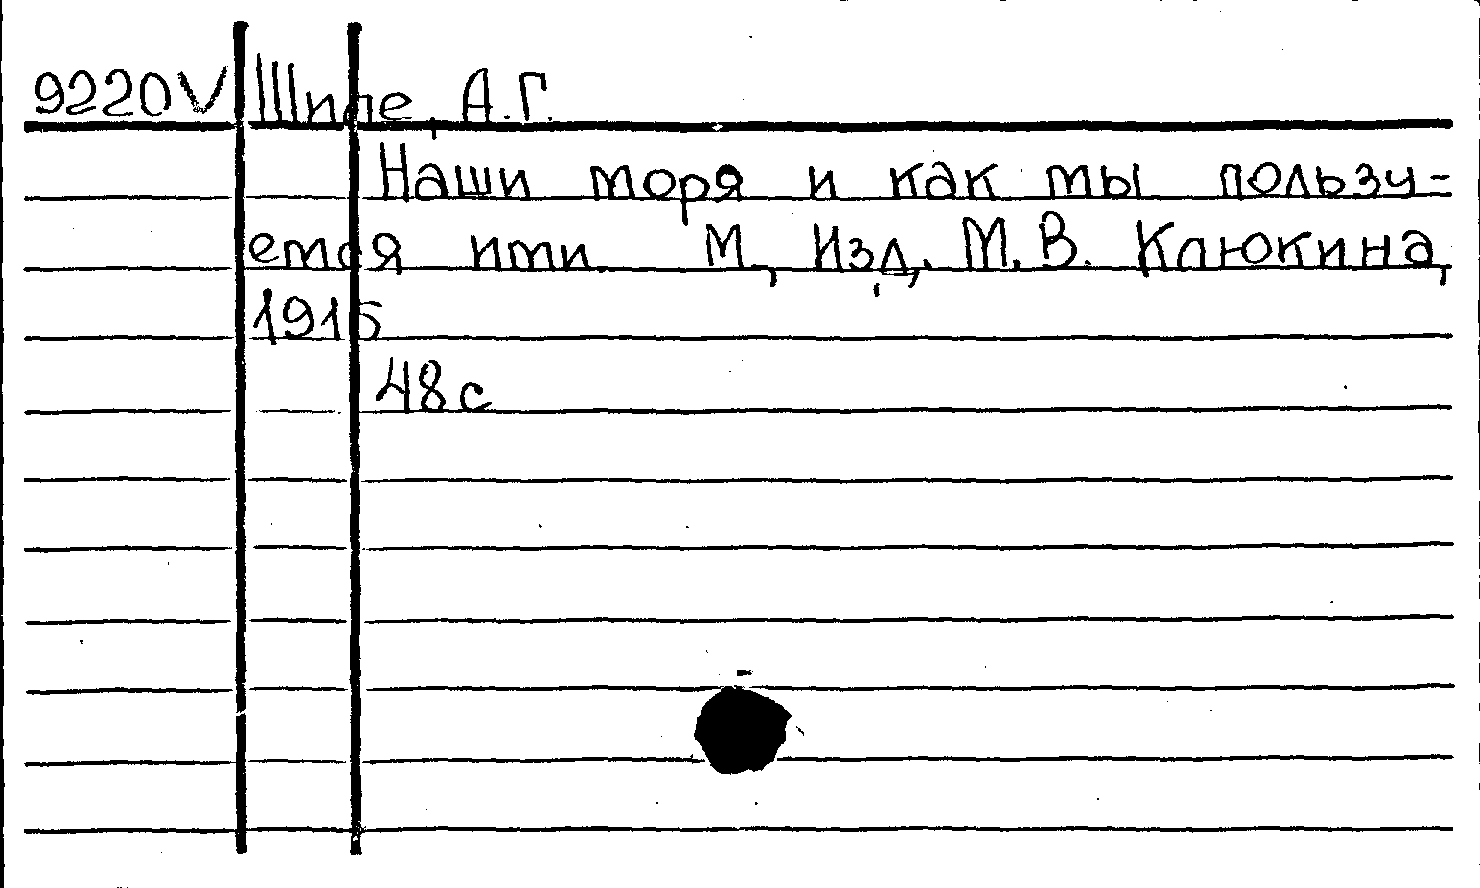 9220V Шипе, А.Г.
Наши моря и как мы пользу-
емся ими. М., Изд. М.В. Клюкина,
1915
48 с